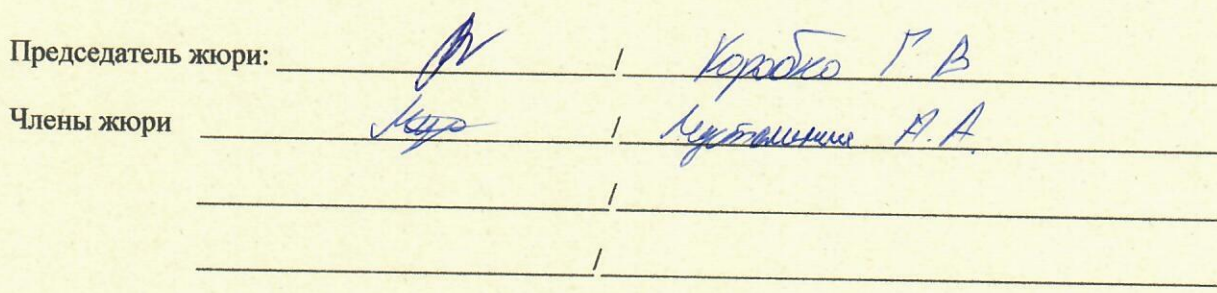 Председатель жюри: / Коробко Г. В
Члены жюри / А. А.
/
/